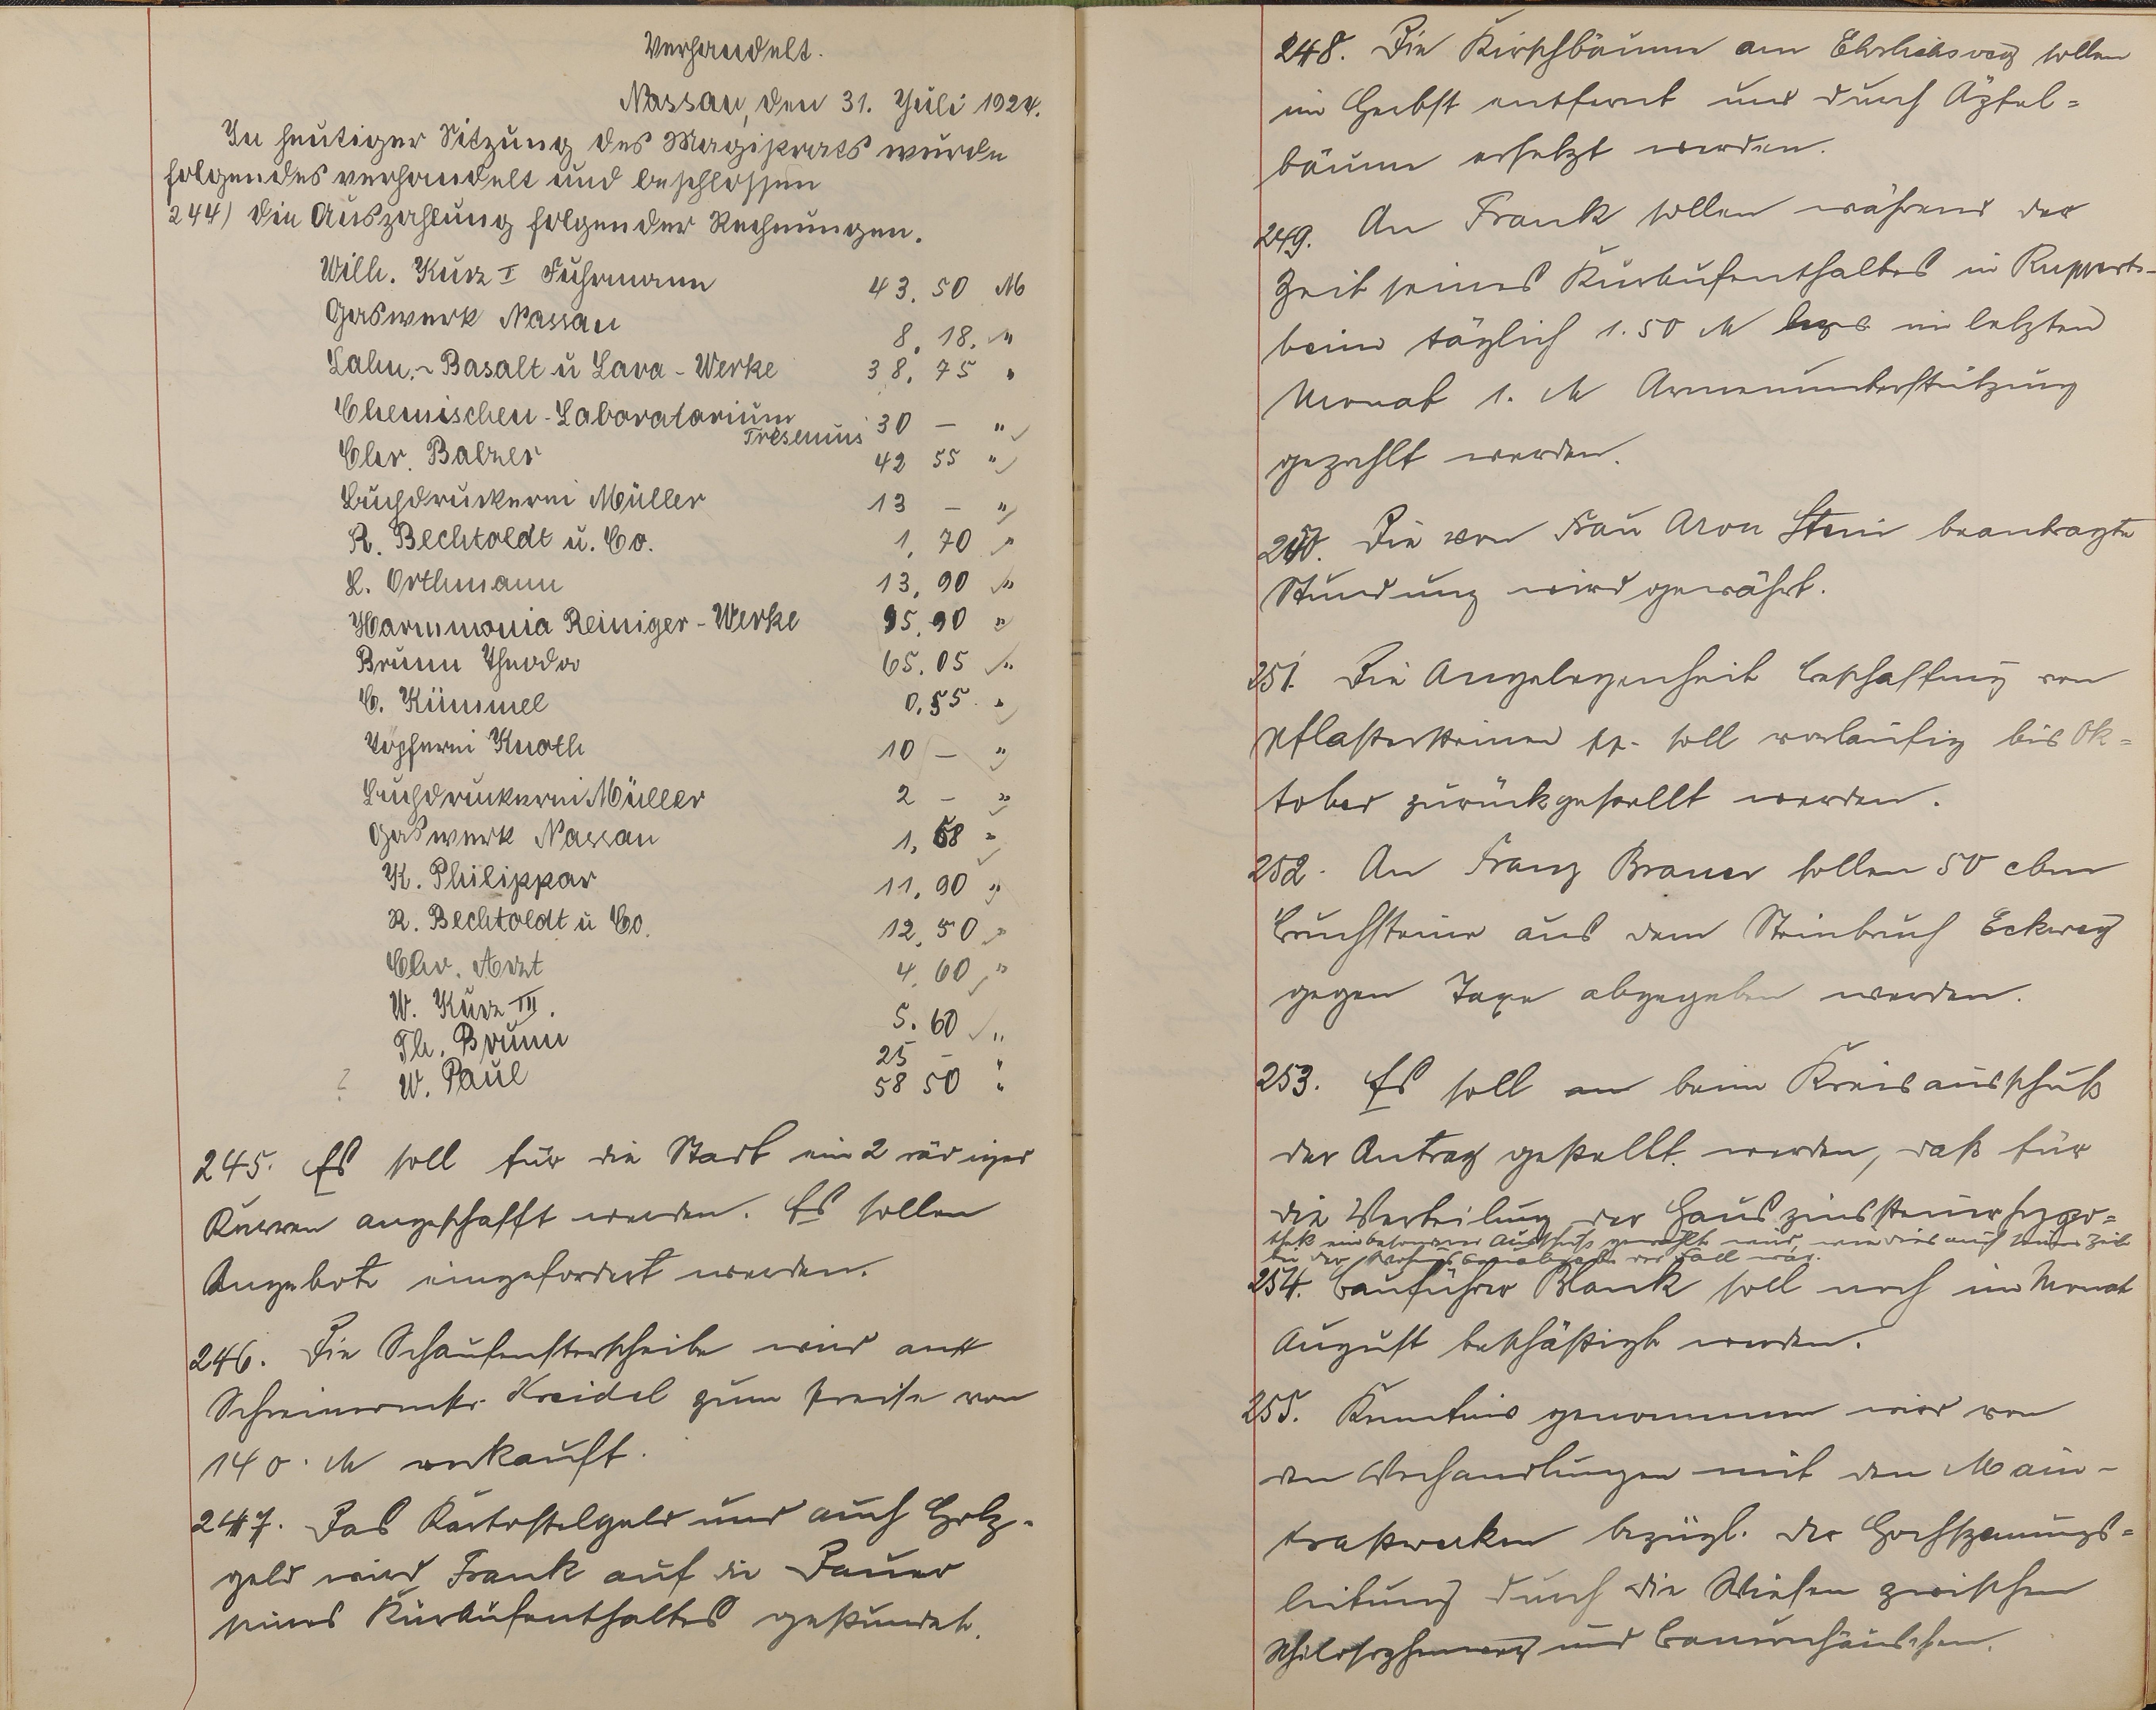 Verhandelt.
Nassau, den 31. Juli 1924.
In heutiger Sitzung des Magistrats wurde
folgendes verhandelt und beschlossen
244) die Auszahlung folgender Rechnungen.
Wilh. Kurz I Fuhrmann 43.50 M
Gaswerk Nassau 8.18. "
Lahn.- Basalt u Lava-Werke 38,75 "
Chemischen-Laboratorium 30 - "
Fresenius
Chr. Balzer 42 55 "
Buchdruckerei Müller 13 - "
R. Bechtoldt u. Co. 1,70 "
L. Orthmann 13,90 "
Harmmonia Reiniger-Werke 95,90 "
Brunn Theodor 65.05 "
C. Kümmel 0.55 "
Töpferei Knoth 10 - "
Buchdruckerei Müller 2 - "
Gaswerk Nassau 1,68 "
K. Philippar 11,90 "
R. Bechtoldt u Co. 12,50 "
Chr. Arzt 4,60 "
W. Kurz III. 5.60 "
Th. Brunn 25 - "
? W. Paul 58 50 "
245. Es soll für die Stadt ein 2 rädriger
Karren angeschafft werden. Es sollen
Angebote eingefordert werden.
246. Die Schaufensterscheibe wird an
Schreinermstr. Kreidel zum Preise von
140. M verkauft.
247. Das Kartoffelgeld und auch Holz-
geld wird Frank auf die Dauer
seines Kuraufenthaltes gestundet.
248. Die Kirschbäume am Ehrlichsweg sollen
im Herbst entfernt und durch Äpfel=
bäume ersetzt werden.
249. An Frank sollen während der
Zeit seines Kuraufenthaltes in Rupperts-
hain täglich 1.50 M bzw im letzten
Monat 1. M Armenunterstützung
gezahlt werden.
250. Die von Frau Aron Stein beantragte
Stundung wird gewährt.
251. Die Angelegenheit Beschaffung von
Pflastersteinen pp. soll vorläufig bis Ok=
tober zurückgestellt werden.
252. An Franz Brauer sollen 50 cbm
Bruchsteine aus dem Steinbruch Eckweg
gegen Taxe abgegeben werden.
253. Es soll an beim Kreisausschuß
der Antrag gestellt werden, daß für
die Verteilung der Hauszinssteuerhypo=
thek ein besonderer Ausschuß gewählt wird, wie dies auch seiner Zeit
bei der Wohnungsbauabgabe der Fall war.
254. Bauführer Blank soll noch im Monat
August beschäftigt werden.
255. Kenntnis genommen wird von
den Verhandlungen mit den Main-
kraftwerken bezügl. der Hochspannungs=
leitung durch die Wiesen zwischen
Philosophenweg und Bauernhäuschen.